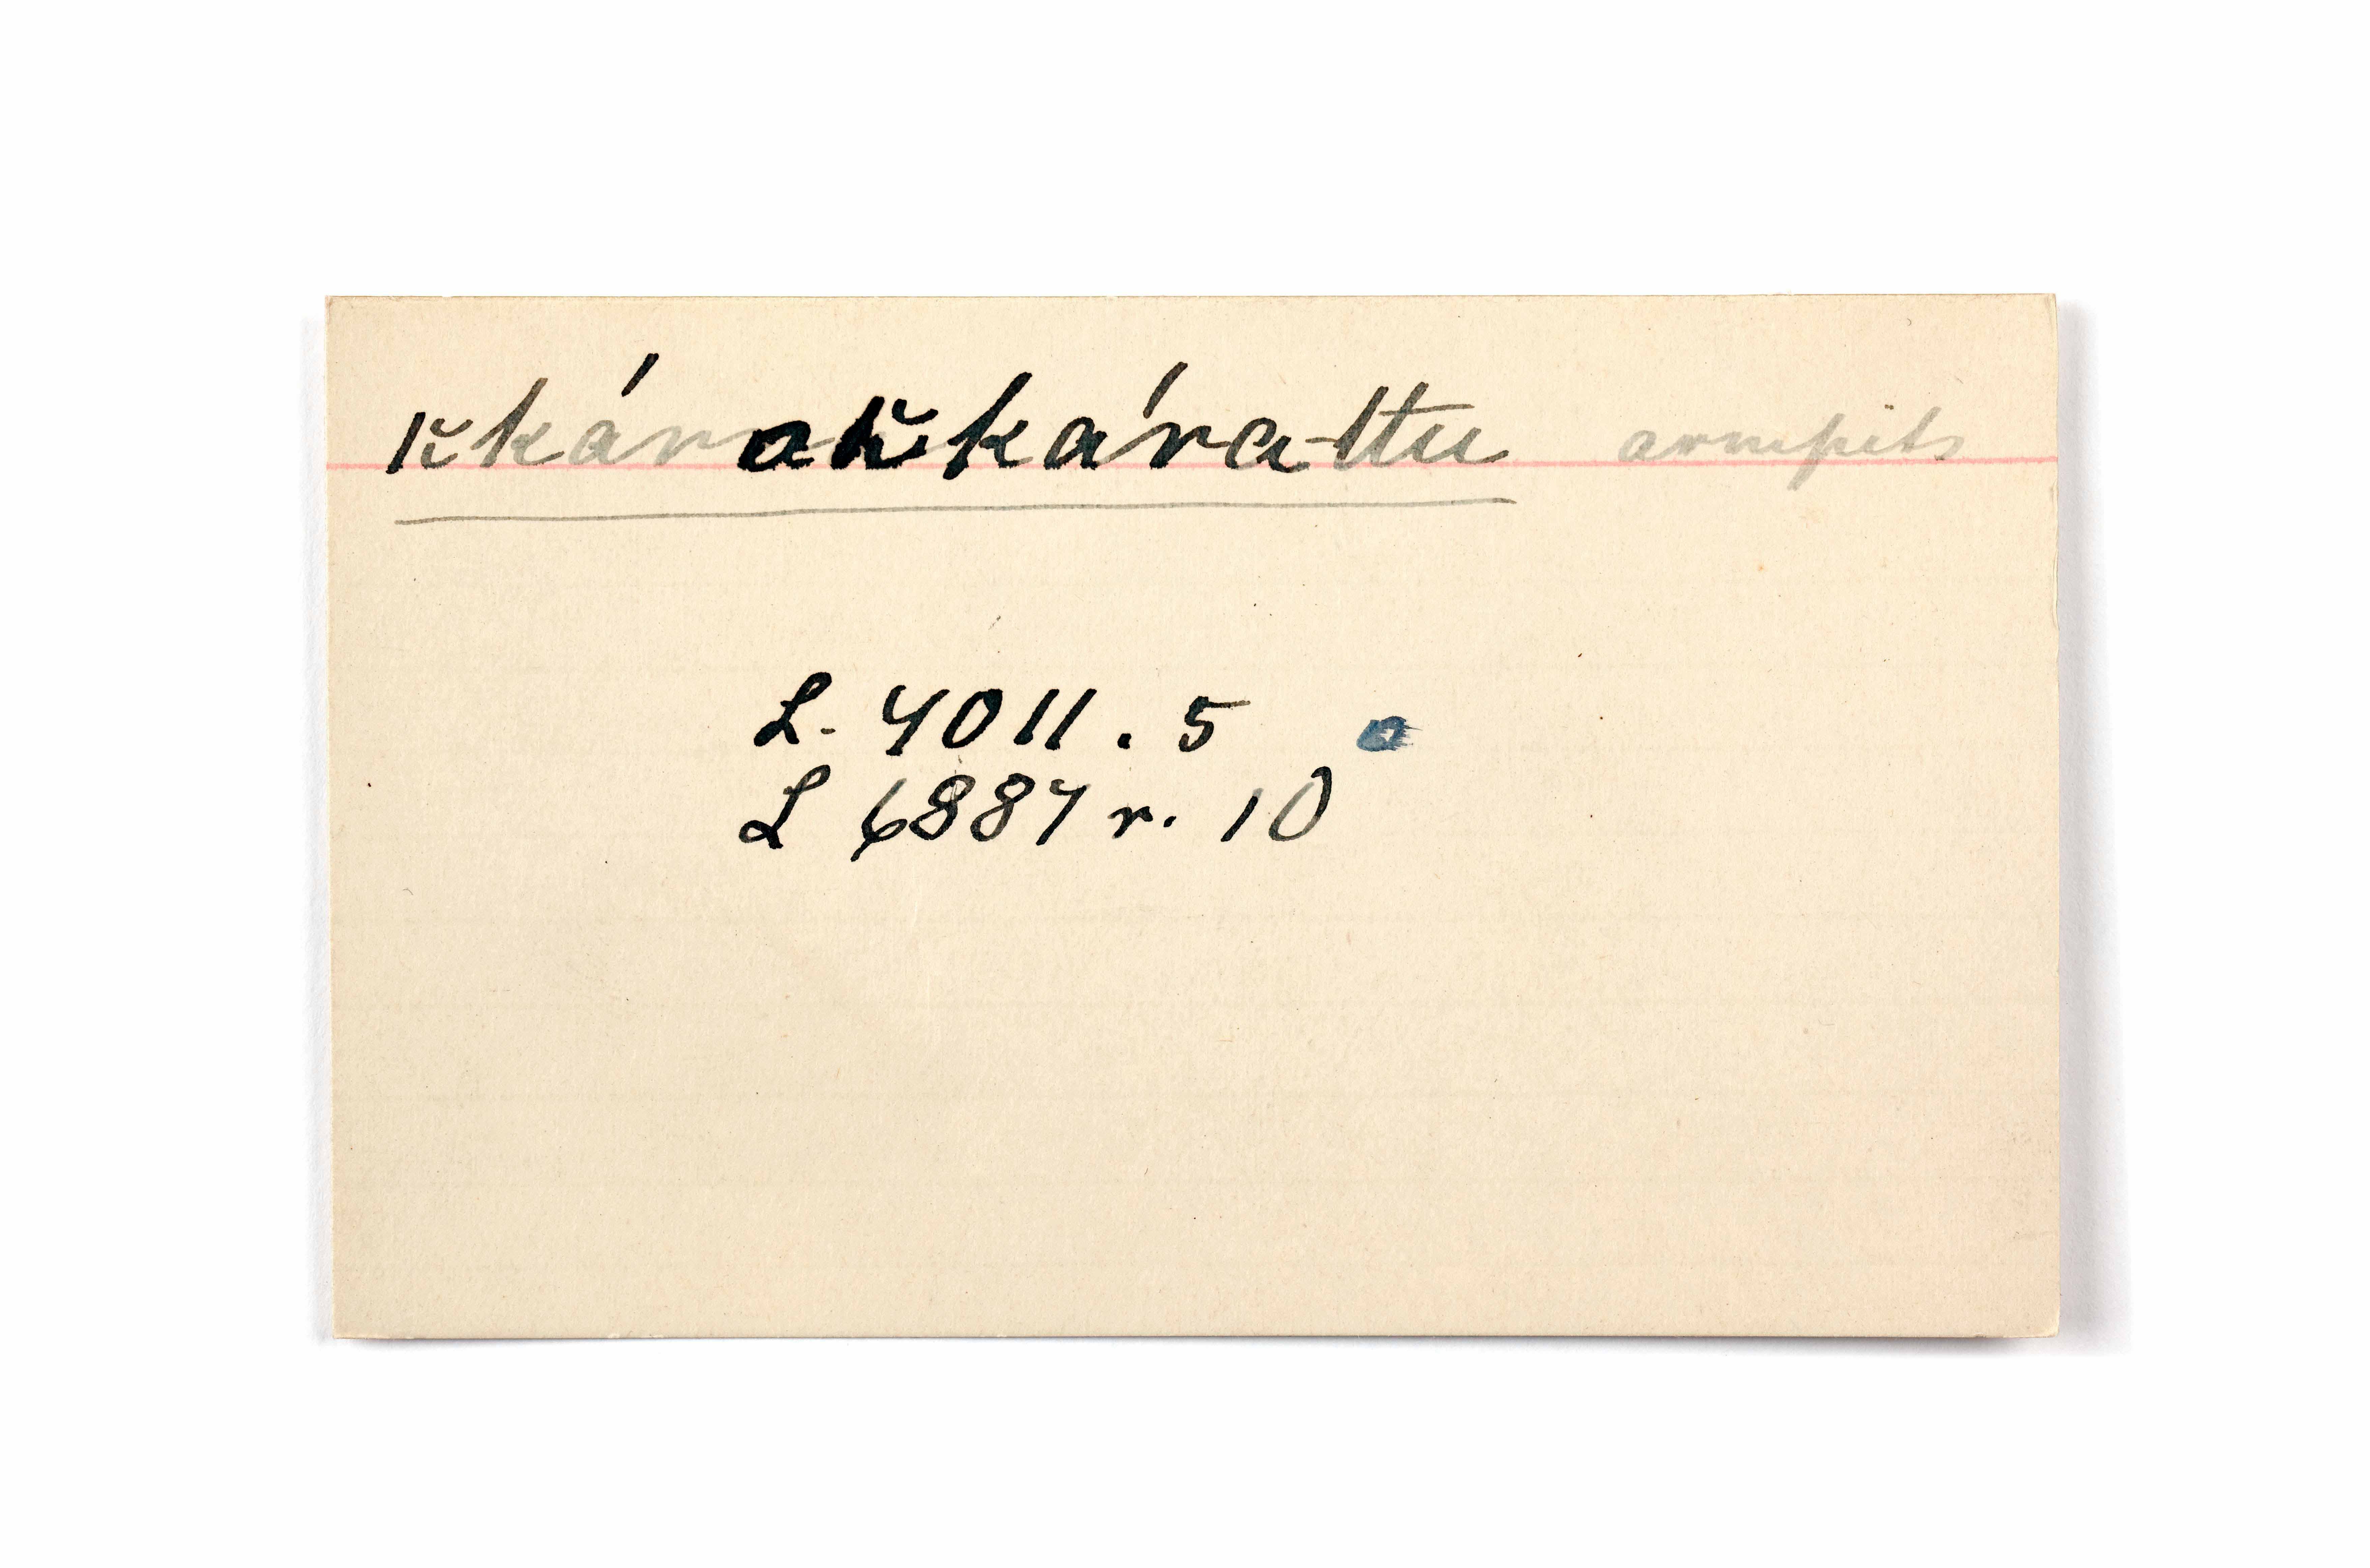 ikkár akkára-ttu armpits
L. 4011 . 5
L 6887 r. 10